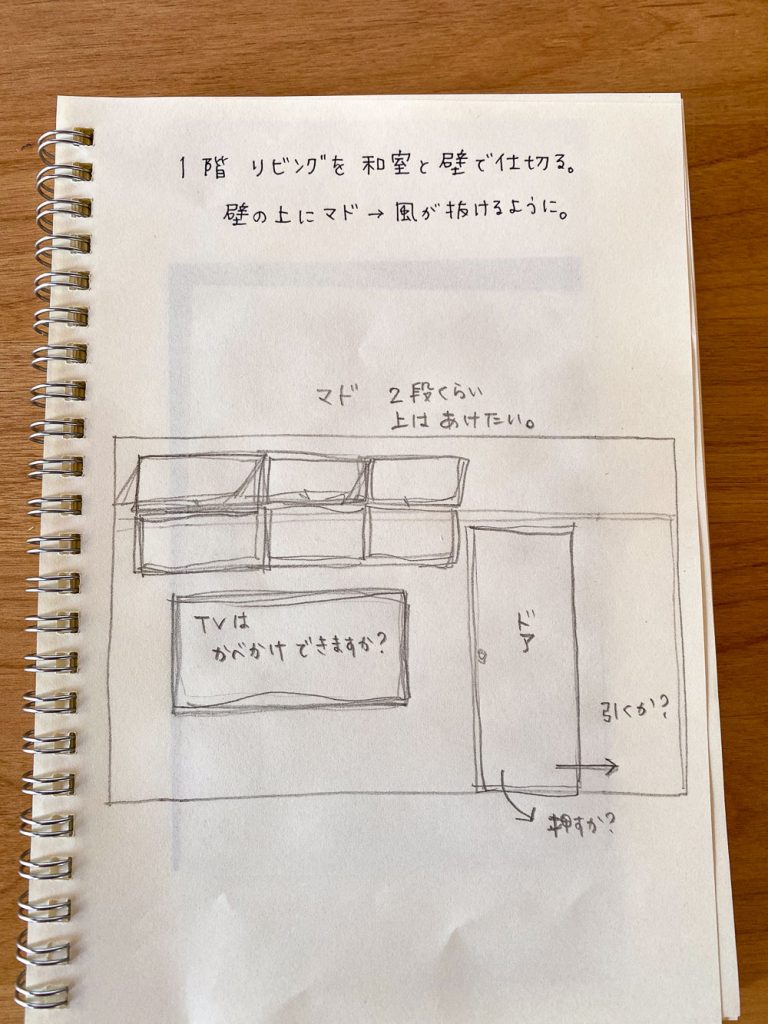 1階 リビングを 和室と 壁で仕切る。
壁の上にマド→風が抜けるように。
マド 2段くらい
上は あけたい。
TVは
かべかけ できますか?
ドア
引くか?
押すか?